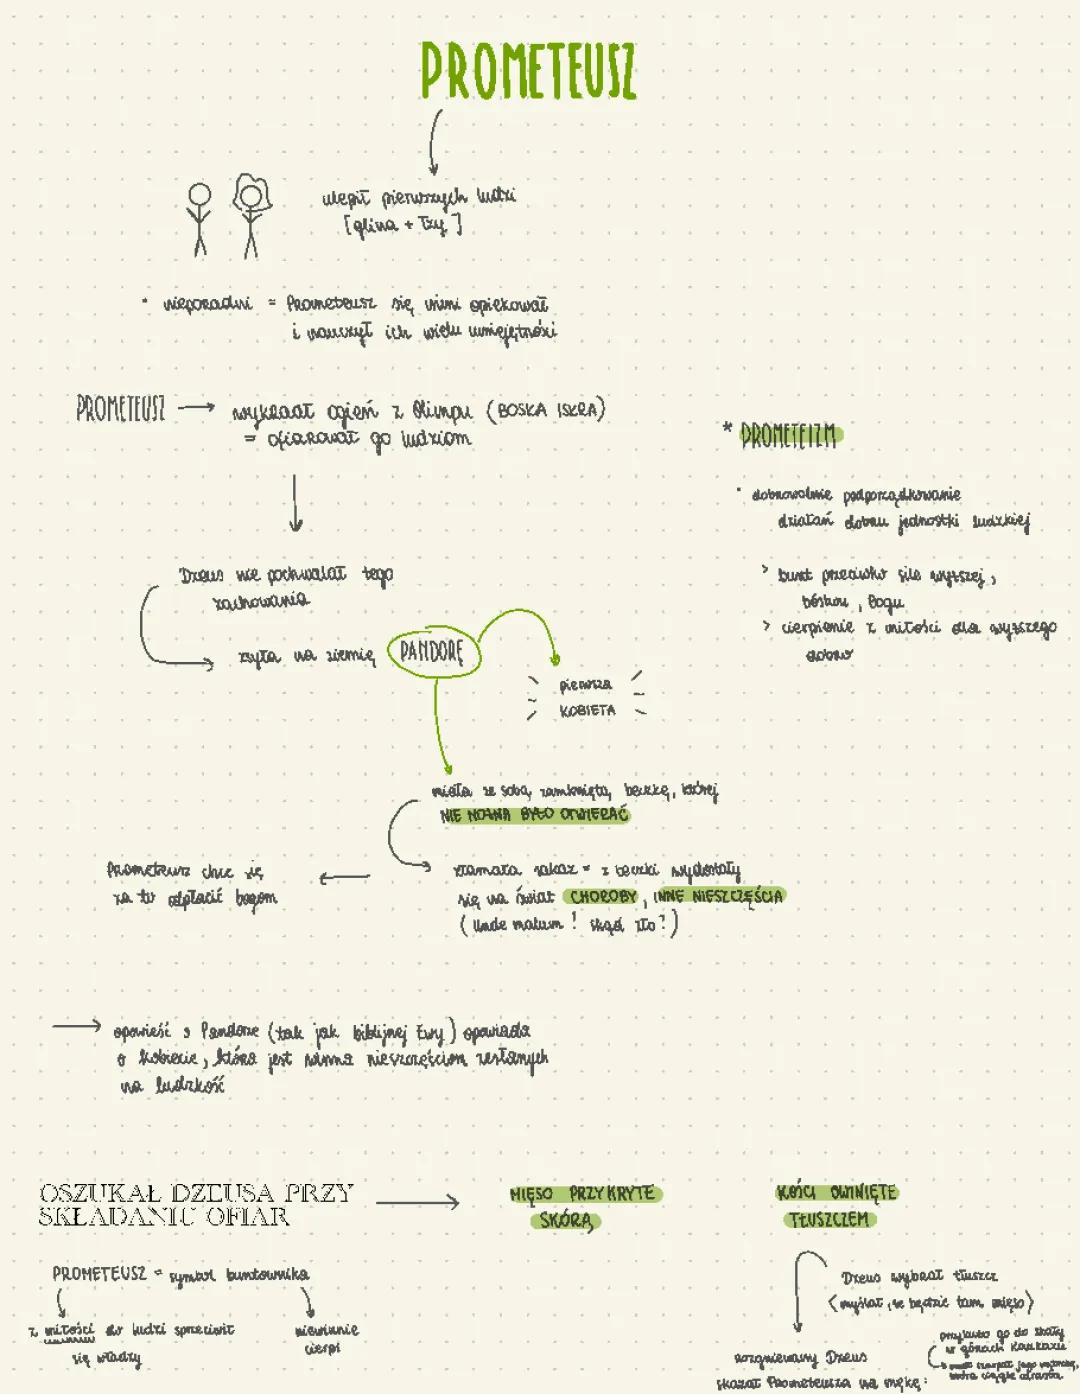 PROMETEUSZ
ulepił pierwszych ludzi
[glina + łzy]
• nieporadni = Prometeusz się nimi opiekował
i nauczył ich wielu umiejętności
PROMETEUSZ → wykradł ogień z Olimpu (BOSKA ISKRA)
= ofiarował go ludziom
* PROMETEIZM
• dobrowolne podporządkowanie
działań dobru jednostki ludzkiej
> bunt przeciwko sile wyższej,
bóstwu, Bogu
> cierpienie z miłości dla wyższego
dobra
Dzeus nie pochwalał tego
zachowania
zsyła na ziemię PANDORĘ
pierwsza
KOBIETA
miała ze sobą zamkniętą beczkę, której
NIE MOŻNA BYŁO OTWIERAĆ
złamała zakaz = z beczki wydostały
się na świat CHOROBY, INNE NIESZCZĘŚCIA
(Unde malum! skąd zło?)
Prometeusz chce się
za to odpłacić bogom
→ opowieść o Pandorze (tak jak biblijnej Ewy) opowiada
o kobiecie, która jest winna nieszczęściom zesłanych
na ludzkość
OSZUKAŁ DZEUSA PRZY
SKŁADANIU OFIAR →
MIĘSO PRZYKRYTE
SKÓRĄ
KOŚCI OWINIĘTE
TŁUSZCZEM
PROMETEUSZ = symbol buntownika
z miłości do ludzi sprzeciwił
się władzy
niewinnie
cierpi
Dzeus wybrał tłuszcz
(myślał, że będzie tam mięso)
rozgniewany Dzeus
skazał Prometeusza na mękę:
przykuto go do skały
w górach Kaukazu
jego wątrobę,
która ciągle odrasta